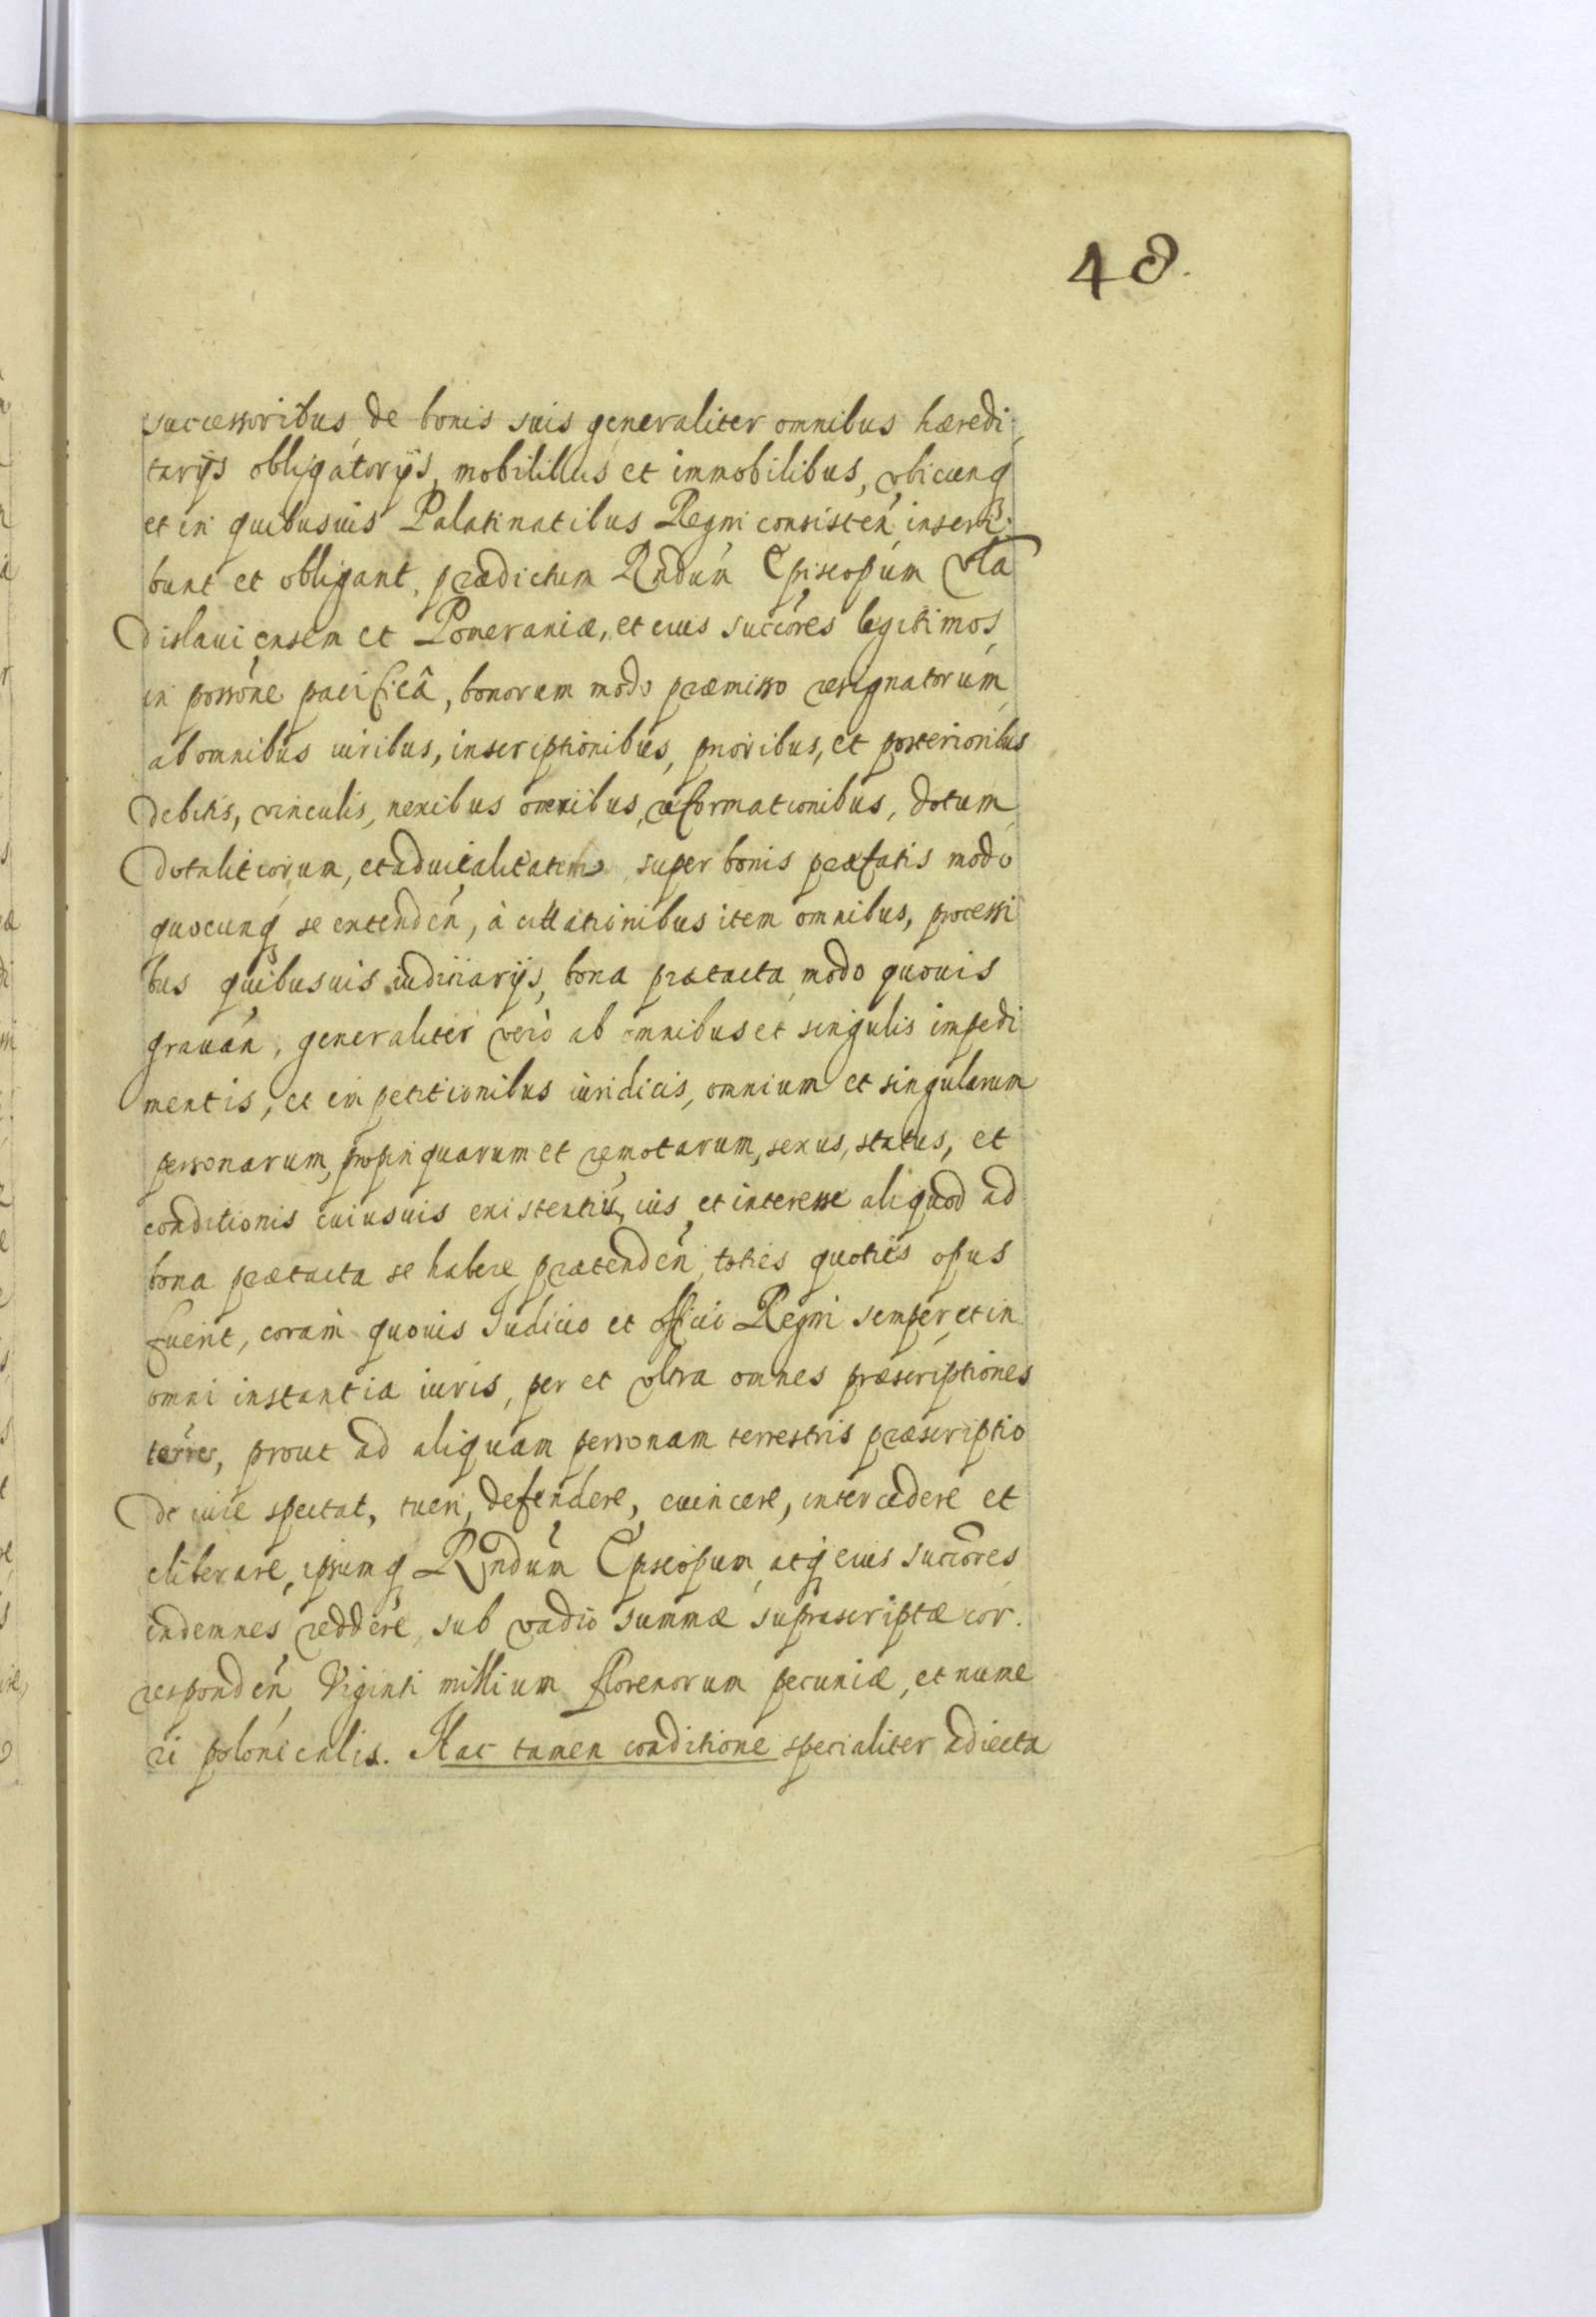 48.
successoribus, de bonis suis generaliter omnibus hæredi
tarijs obligatorijs, mobilillus et immobilibus, vbicunq
et in quibusuis Palatinatibus Regni consisten inscri
bunt et obligant, prædictum Rndum Episcopum Vla
dislauiensem et Pomeraniæ, et eius succores legitimos,
in possone pacificâ, bonorum modo præmisso resignatorum
ab omnibus iuribus, inscriptionibus, prioribus, et posterioribus
debitis, vinculis, nexibus omnibus, reformationibus, dotum
dotalitiorum, et aduitalitatem, super bonis præfatis modo
quocunq se extenden, à citationibus item omnibus, processi
bus quibusuis iudiciarijs, bona prætacta modo quouis
grauan, generaliter verò ab omnibus et singulis impedi
mentis, et impetitionibus iuridicis, omnium et singularum
personarum, propinquarum et remotarum, sexus, status, et
conditionis cuiusuis existentiu, ius et interesse aliquod ad
bona prætacta se habere prætenden, toties quoties opus
fuerit, coram quouis Iudicio et officio Regni semper, et in
omni instantia iuris, per et vltra omnes præscriptiones
terres, prout ad aliquam personam terrestris præscriptio
de iure spectat, tueri, defendere, euincere, intercedere et
eliberare, ipsumq Rndum Episcopum, atq eius succores
indemnes reddere, sub vadio summæ suprascriptæ cor
responden, Viginti millium florenorum pecuniæ, et nume
ri polonicalis. Hac tamen conditione specialiter adiecta